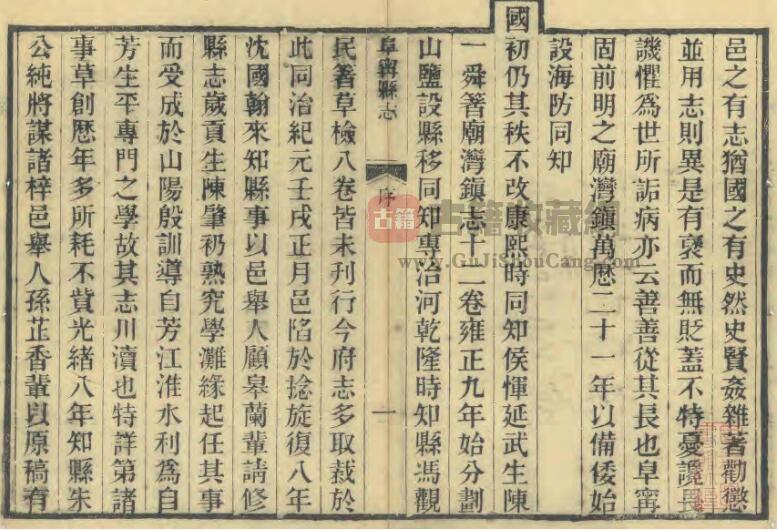 邑之有志猶國之有史然史賢姦雜著勸懲
並用志則異是有褒而無貶蓋不特憂讒畏
譏懼為世所詬病亦云善善從其長也阜寗
固前明之廟灣鎮萬歷二十一年以備倭始
設海防同知
國初仍其秩不改康熙時同知侯惲延武生陳
一舜著廟灣鎮志十二卷雍正九年始分劃
山鹽設縣移同知專治河乾隆時知縣馮觀
阜寗縣志
序
一
民著草檢八卷皆未刊行今府志多取裁於
此同治紀元壬戌正月邑陷於捻旋復八年
沈國翰來知縣事以邑舉人顧皋蘭輩請修
縣志歲貢生陳肇礽熟究學灘緣起任其事
而受成於山陽殷訓導自芳江淮水利為自
芳生平專門之學故其志川瀆也特詳第諸
事草創歷年多所耗不貲光緒八年知縣朱
公純將謀諸梓邑舉人孫芷香輩以原稿有
古籍
古籍收藏網
www.GuJiShouCang.com